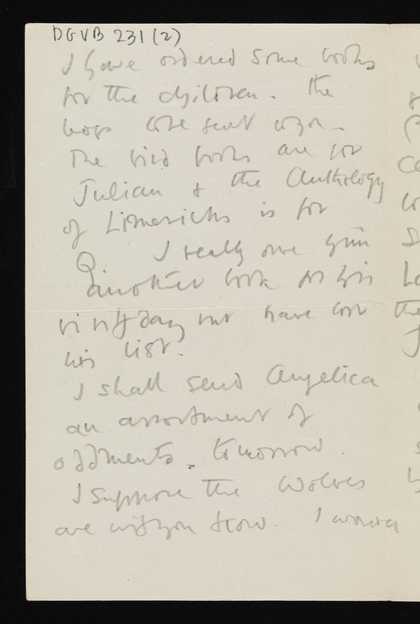 DGVB 231 (2)
I have ordered some books
for the children. The
boys
The bird books are for
Julian & the Anthology
of Limericks is for
Q I really owe him
another book for his
birthday but have lost
his list.
I shall send Angelica
an assortment of
oddments tomorrow.
I suppose the Wolves
are with you now. I